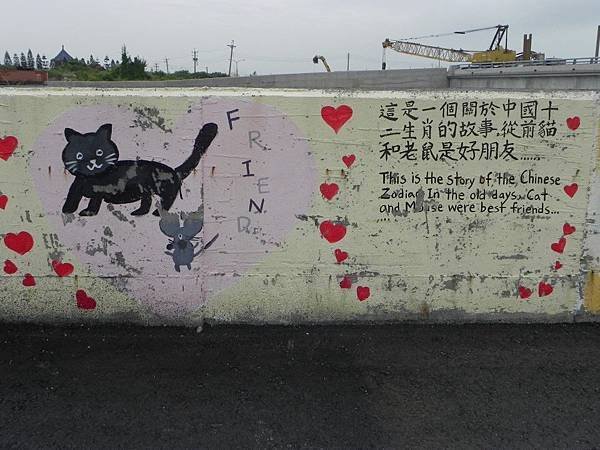 FRIEND
這是一個關於中國十
二生肖的故事.從前貓
和老鼠是好朋友......
This is the story of the Chinese
Zodiac. In the old days.. Cat
and Mouse were best friends...